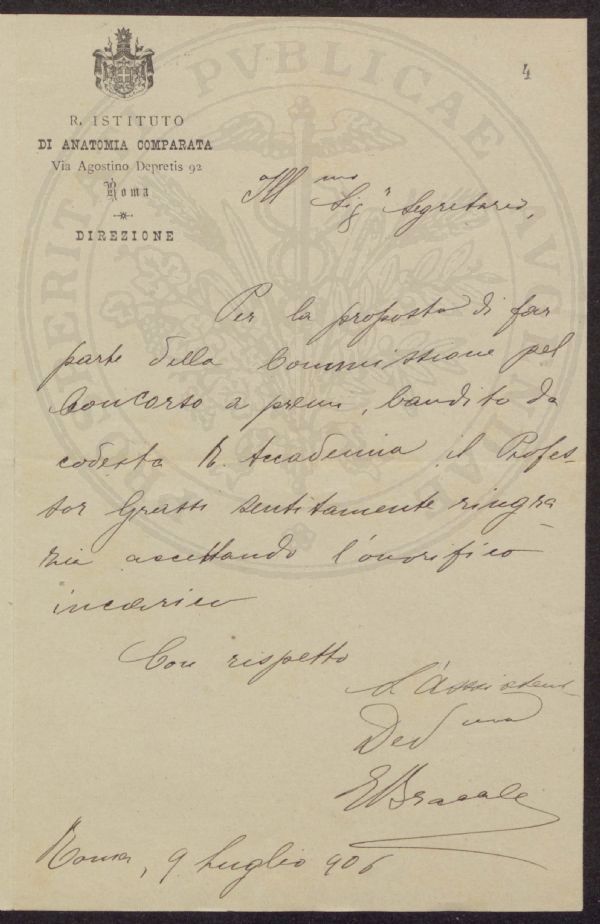 4
R. ISTITUTO
DI ANATOMIA COMPARATA
Via Agostino Depretis 92
Roma
DIREZIONE
Ill^mo Sig^r Segretario,
Per la proposta di far
parte della Commissione pel
Concorso a premi, bandito da
codesta R. Accademia il Profes-
sor Grassi sentitamente ringra
zia accettando l'onorifico
incarico
Con rispetto
L'Assistente
Dev^mo
Roma, 9 Luglio 906
PVBLICAE